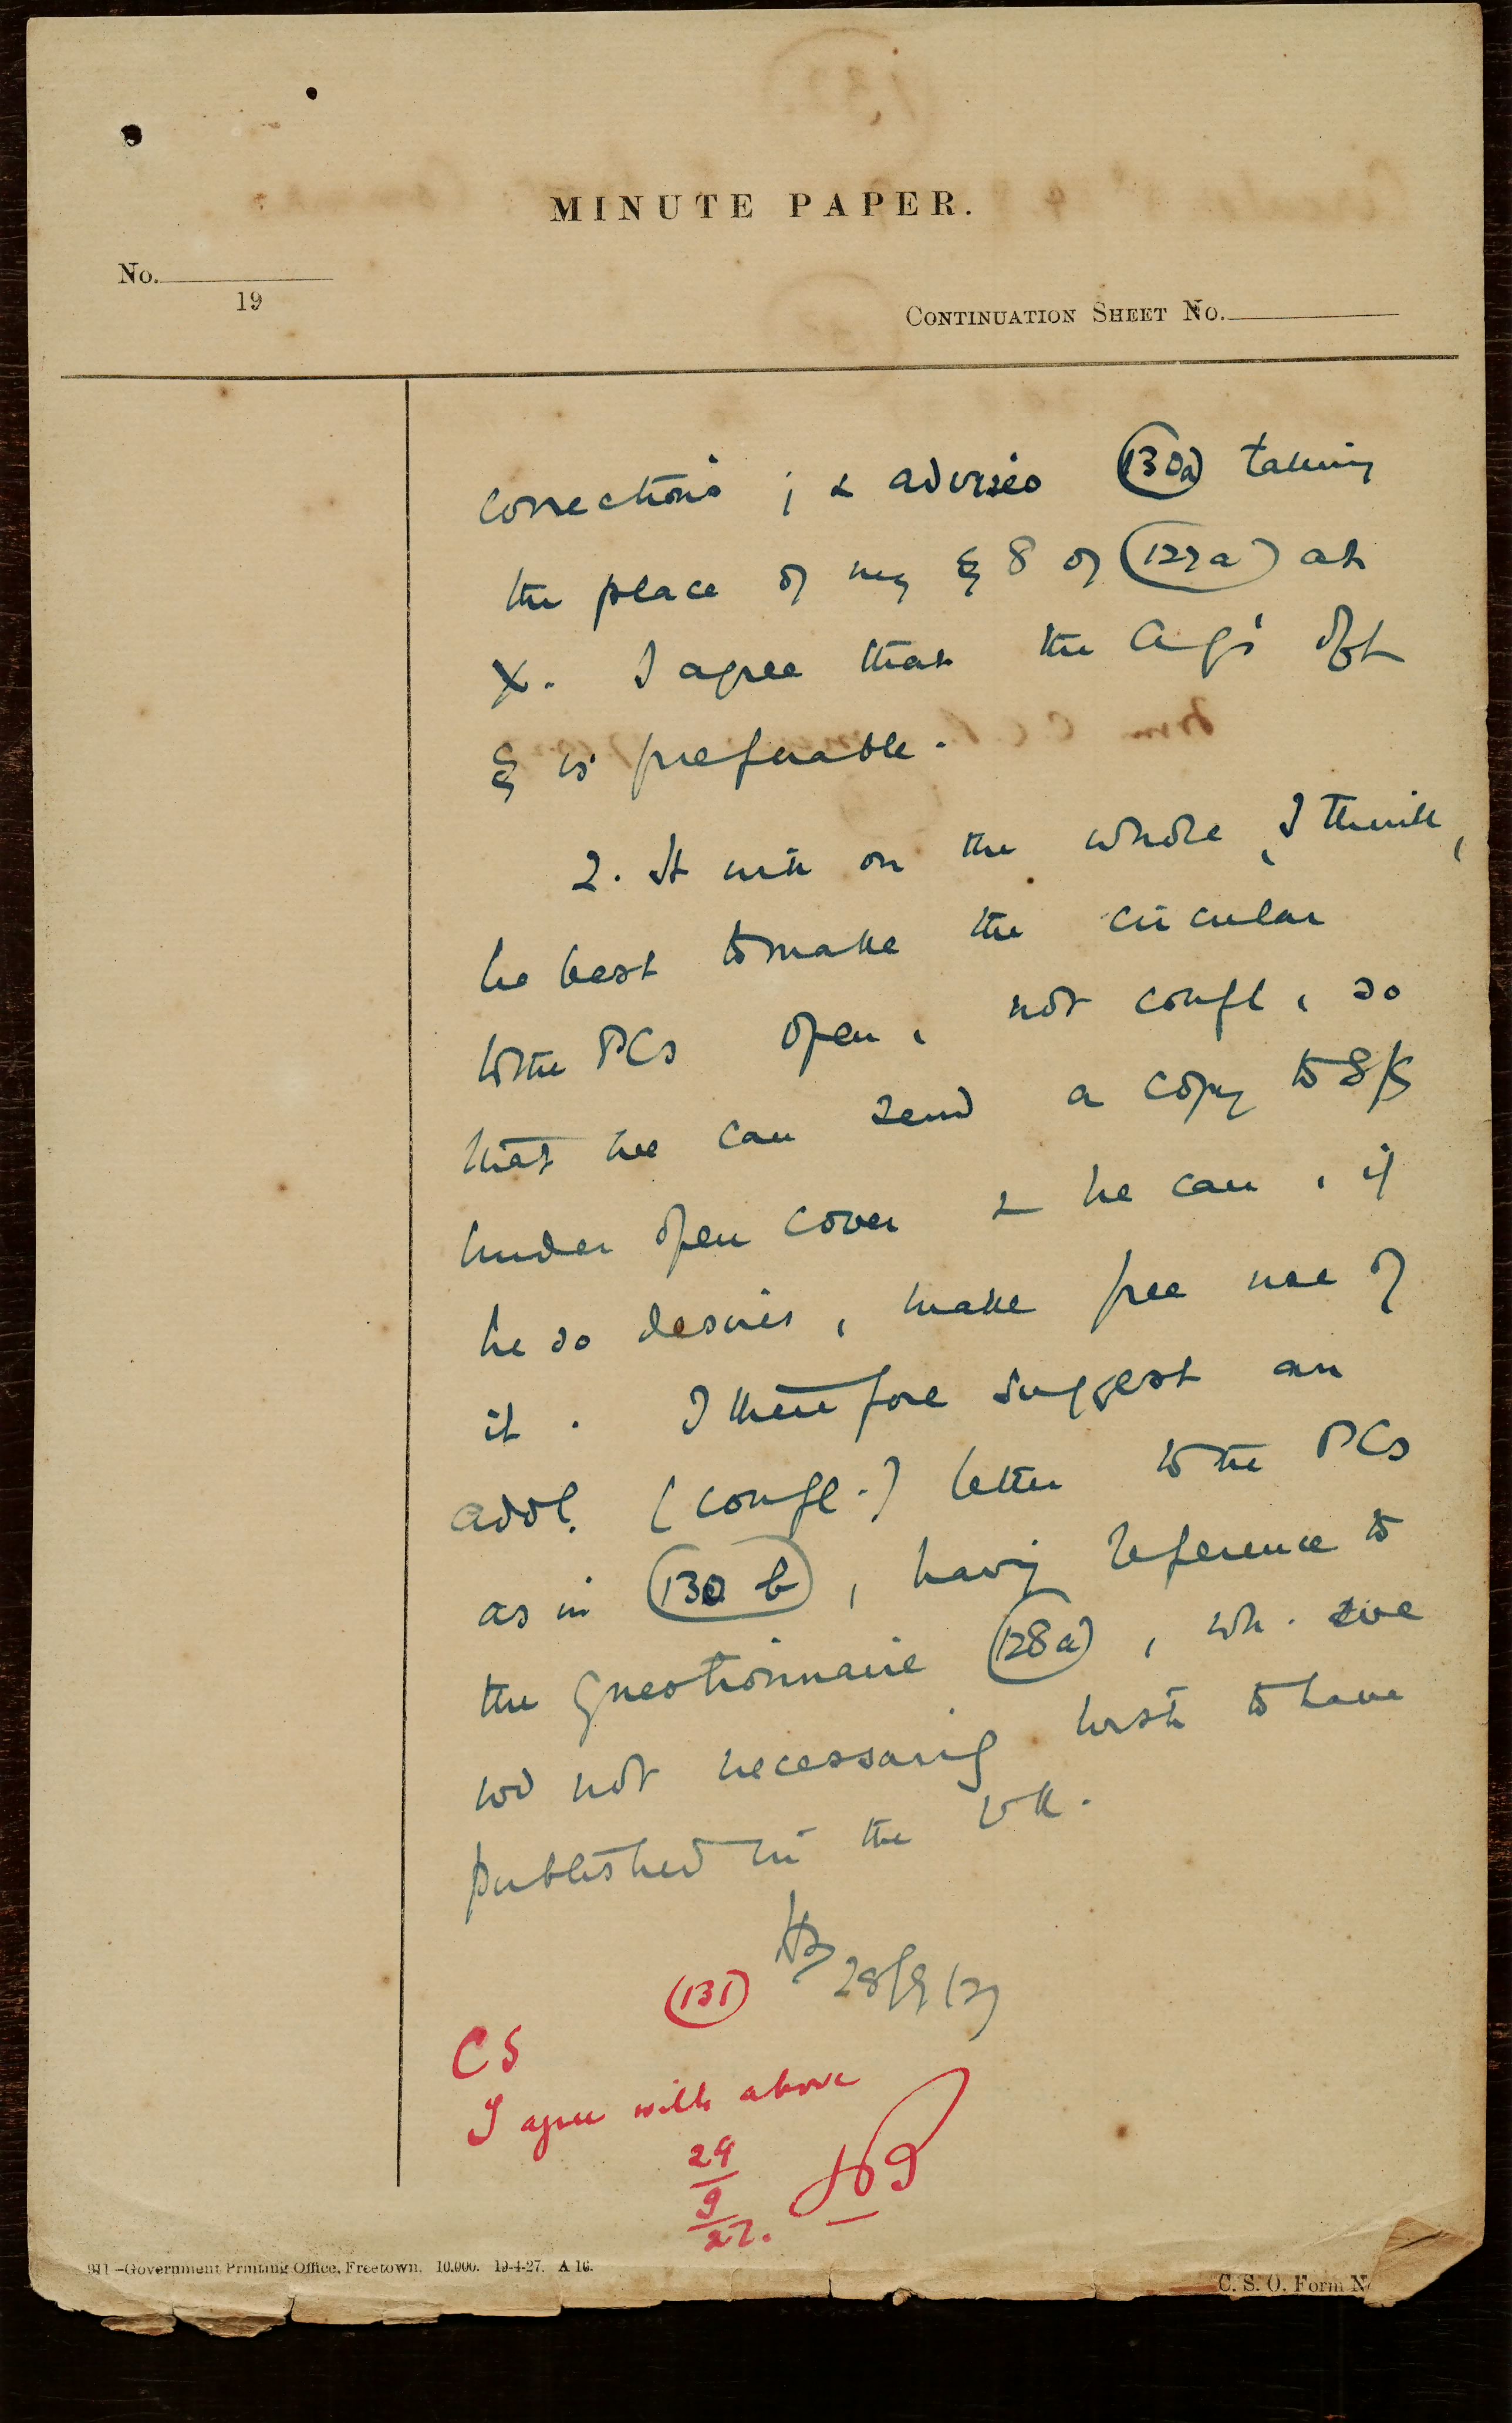 MINUTE PAPER.
No.
19
CONTINUATION SHEET No.
corrections ; & advises (130a) taking
the place of my § 8 of (127a) at
X. I agree that the AG's dft
§ is preferable.
2. It will on the whole, I think,
be best to make the circular
to the PCs open, not confl, so
that we can send a copy to S/S
under open cover & he can, if
he so desires, make free use of
it. I therefore suggest an
addl. (confl.) letter to the PCs
as in (130 b), having reference to
the Questionnaire (128a), wh. we
wd not necessarily wish to have
published in the UK.
28/9/27
(131)
CS
I agree with above
29
9
27.
911—Government Printing Office, Freetown. 10,000. 19-4-27. A 16.
C. S. O. Form N